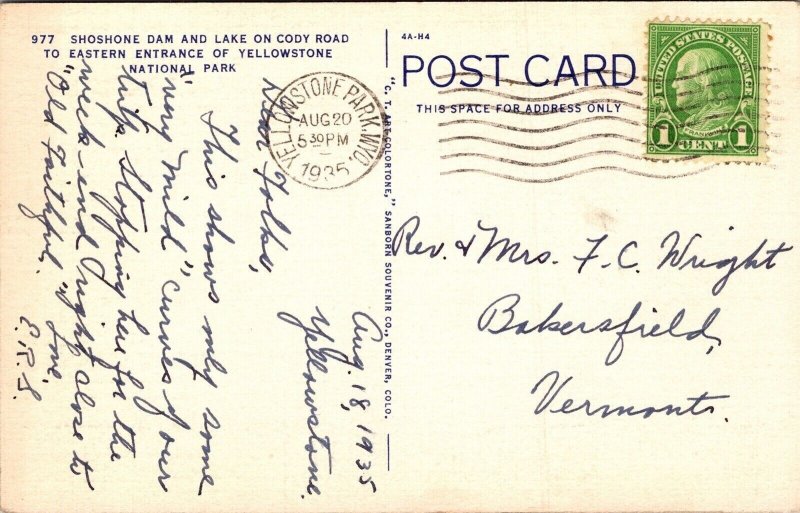 977 SHOSHONE DAM AND LAKE ON CODY ROAD
TO EASTERN ENTRANCE OF YELLOWSTONE
NATIONAL PARK
Aug. 18, 1935
Yellowstone.
Dear Folks,
This shows only some
"very mild" curves of our
trip. Stopping here for the
week-end right close to
"Old Faithful". Love,
E.R.S.
"C. T. ART-COLORTONE," SANBORN SOUVENIR CO., DENVER, COLO.
4A-H4
POST CARD
THIS SPACE FOR ADDRESS ONLY
YELLOWSTONE PARK, WYO.
AUG 20
5 30 PM
1935
UNITED STATES POSTAGE
FRANKLIN
1 CENT 1
Rev. & Mrs. F. C. Wright
Bakersfield,
Vermont.